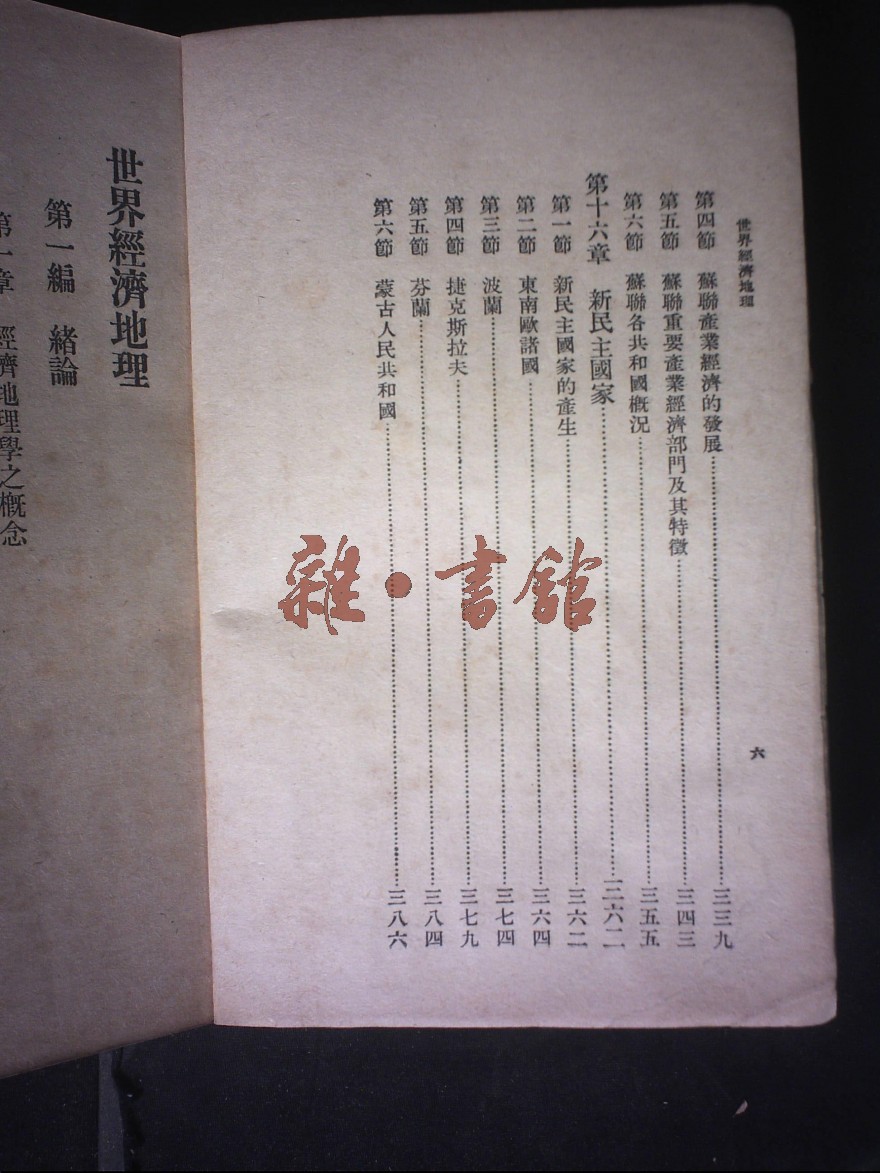 世界經濟地理
六
第四節 蘇聯產業經濟的發展……三三九
第五節 蘇聯重要產業經濟部門及其特徵……三四三
第六節 蘇聯各共和國概況……三五五
第十六章 新民主國家……三六二
第一節 新民主國家的產生……三六二
第二節 東南歐諸國……三六四
第三節 波蘭……三七四
第四節 捷克斯拉夫……三七九
第五節 芬蘭……三八四
第六節 蒙古人民共和國……三八六
世界經濟地理
第一編 緒論
第一章 經濟地理學之概念
雜·書館